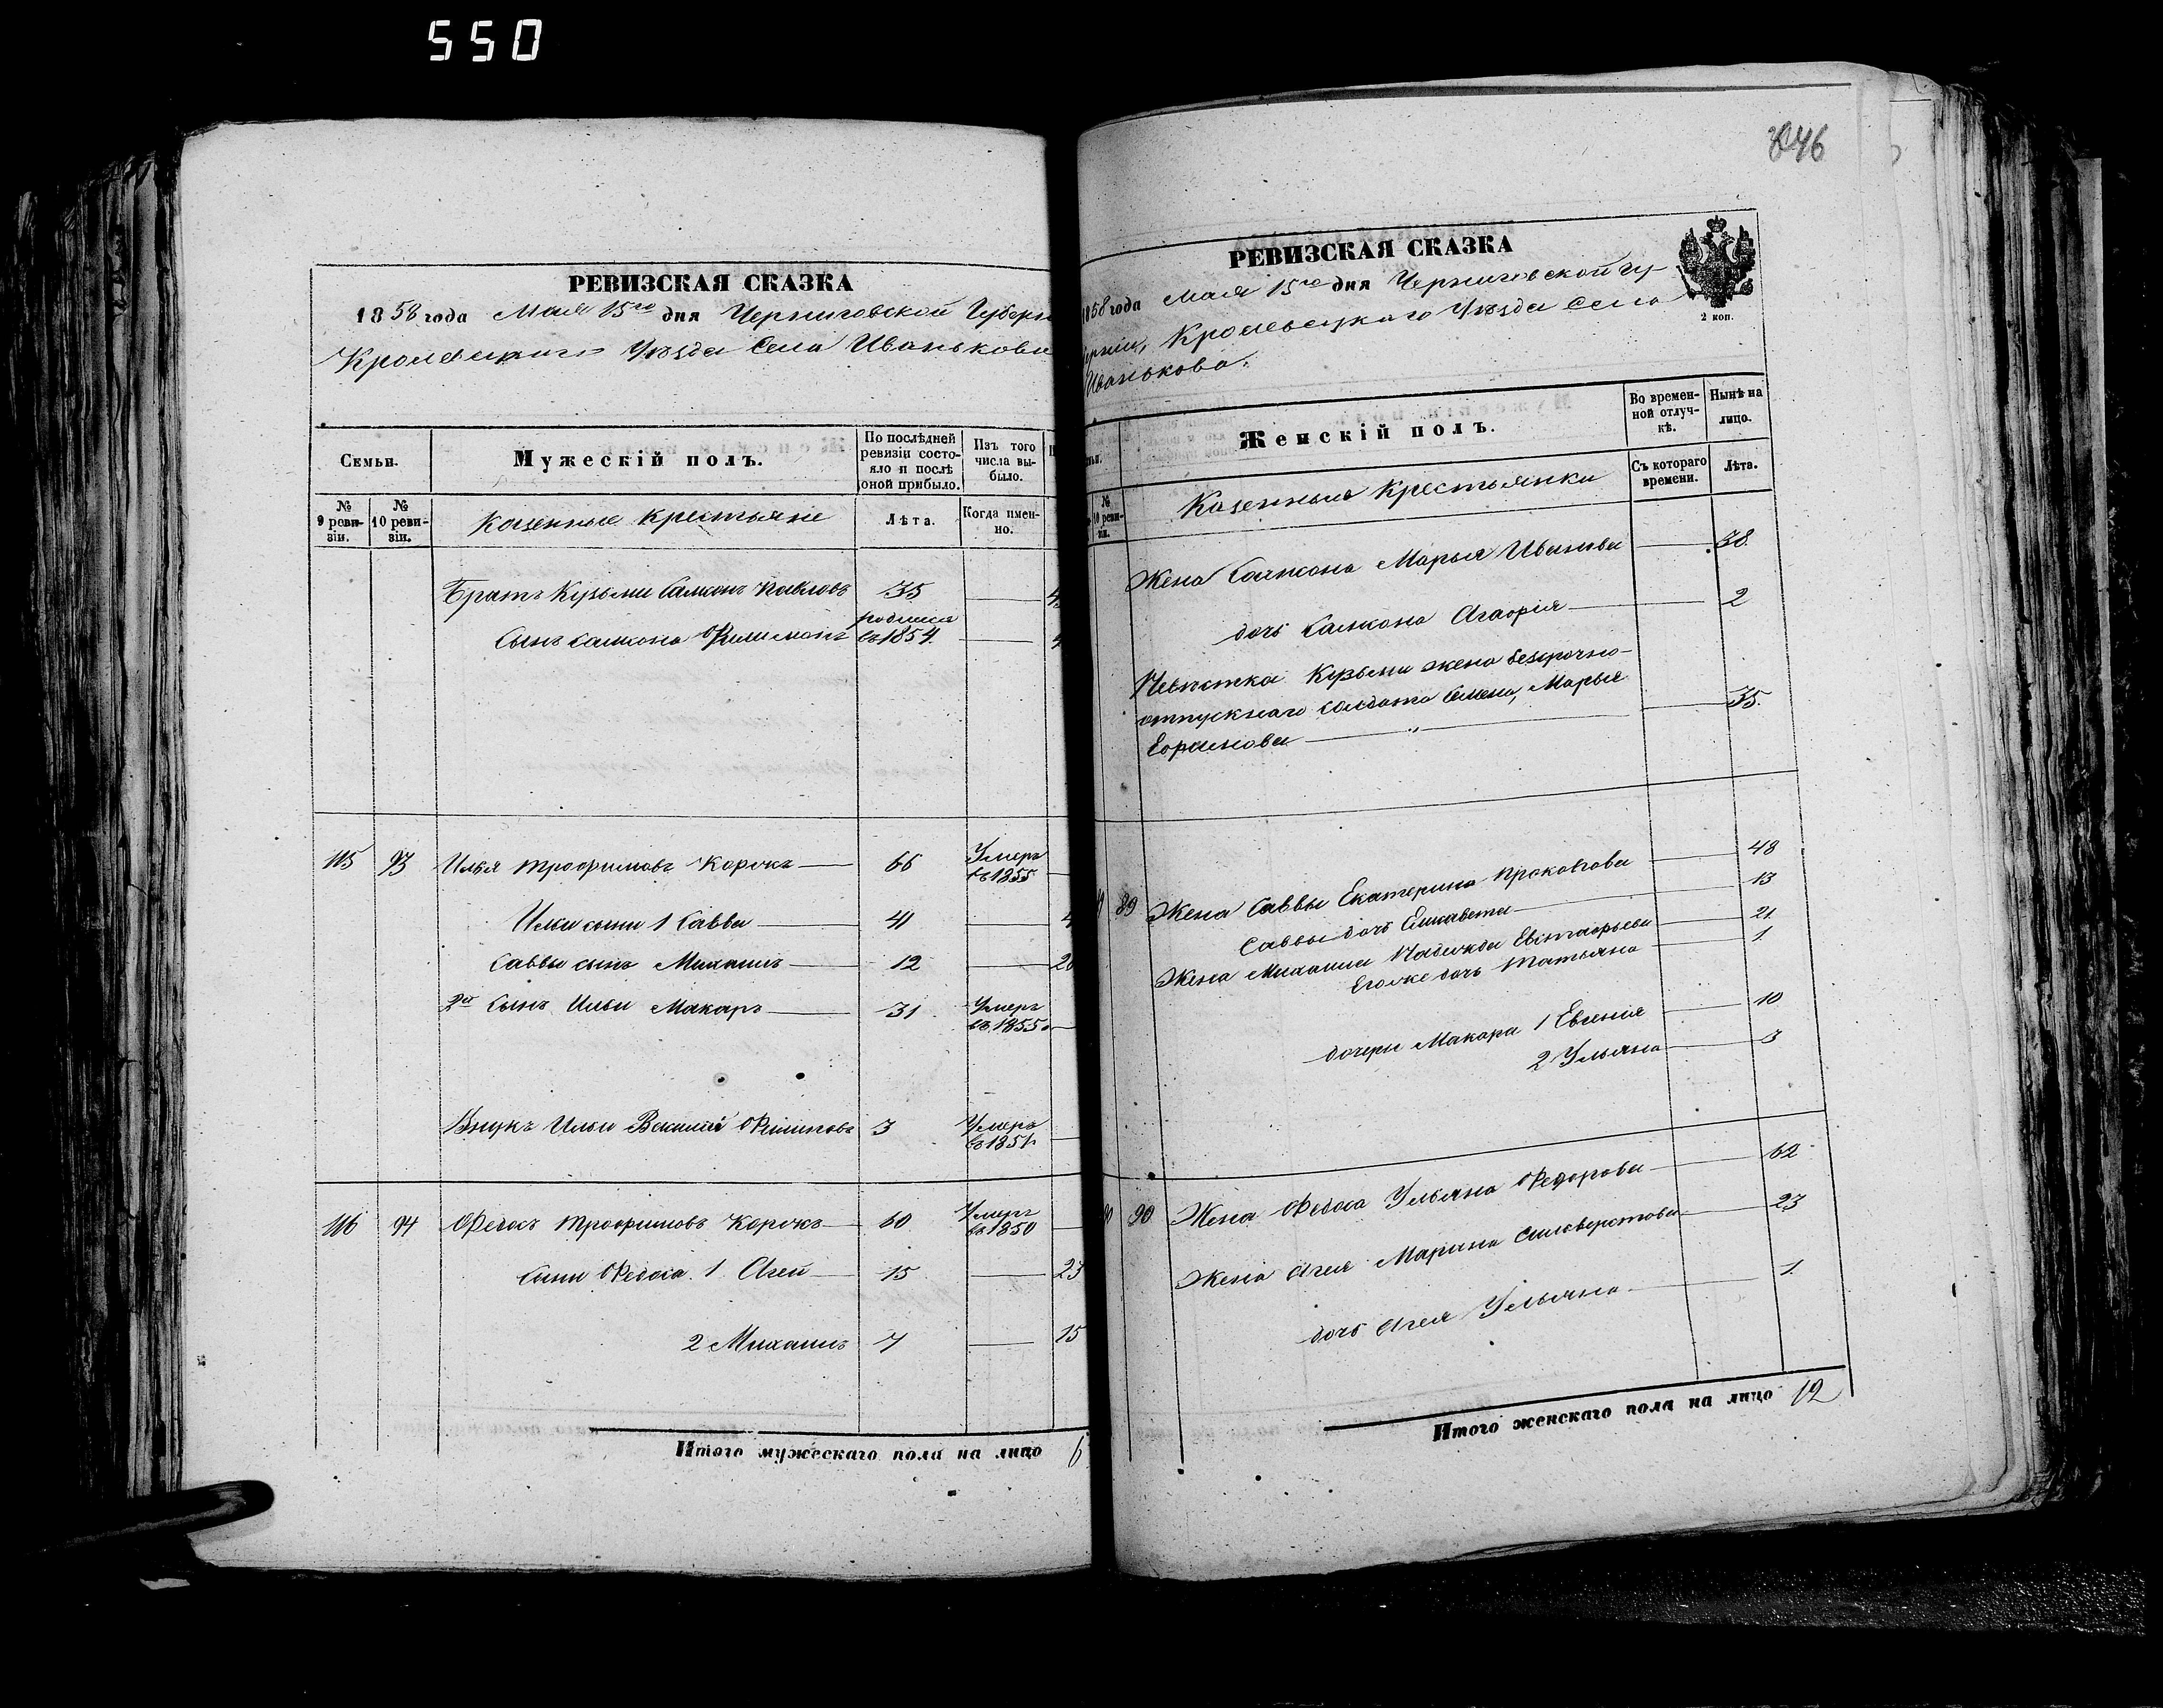 550
РЕВИЗСКАЯ СКАЗКА
1858 года Мая 15го дня Черниговской Губерн
Кролевецкаго Уѣзда Села Иванькова
Семьи.
Мужескій полъ.
По послѣдней ревизіи состо-
яло и послѣ
оной прибыло.
Изъ того
числа вы-
было.
№
9 реви-
зіи.
№
10 реви-
зіи.
Казенные Крестьяне
Лѣта.
Когда имен-
но.
Братъ Кузьмы Самсонъ Павловъ 35
родился
Сынъ Самсона Филимонъ въ 1854
115 93 Илья Трофимовъ Корокъ 66 Умеръ
въ 1855
Ильи сыны 1 Савва 41
Саввы сынъ Михаилъ 12
2й Сынъ Ильи Макаръ 31 Умеръ
въ 1855
Внукъ Ильи Василий Филиповъ 3 Умеръ
въ 1851
116 94 Федосъ Трофимовъ Корокъ 60 Умеръ
въ 1850
Сыны Федоса 1 Агей 15 23
2 Михаилъ 7 15
Итого мужескаго пола на лицо 6
846
РЕВИЗСКАЯ СКАЗКА
1858 года Мая 15го дня Черниговской Гу-
берніи, Кролевецкаго Уѣзда Села
Иванькова.
2 коп.
Женскій полъ.
Во времен-
ной отлуч-
кѣ.
Нынѣ на
лицо.
№
10 реви-
зіи.
Казенныя Крестьянки
Съ котораго
времени.
Лѣта.
Жена Самсона Марья Иванова 38
дочь Самсона Агафія 2
Невѣстка Кузьмы жена безсрочно-
отпускнаго солдата Семена, Марья
Ефимова 35
89 Жена Саввы Екатерина Прокофова 48
Саввы дочь Елисавета 13
Жена Михаила Надежда Евстафьева 21
Егоже дочь Татьяна 1
дочери Макара 1 Евгенія 10
2 Ульяна 3
90 Жена Федоса Ульяна Федорова 62
Жена Агея Марина Сильверстова 23
дочь Агея Ульяна 1
Итого женскаго пола на лицо 12